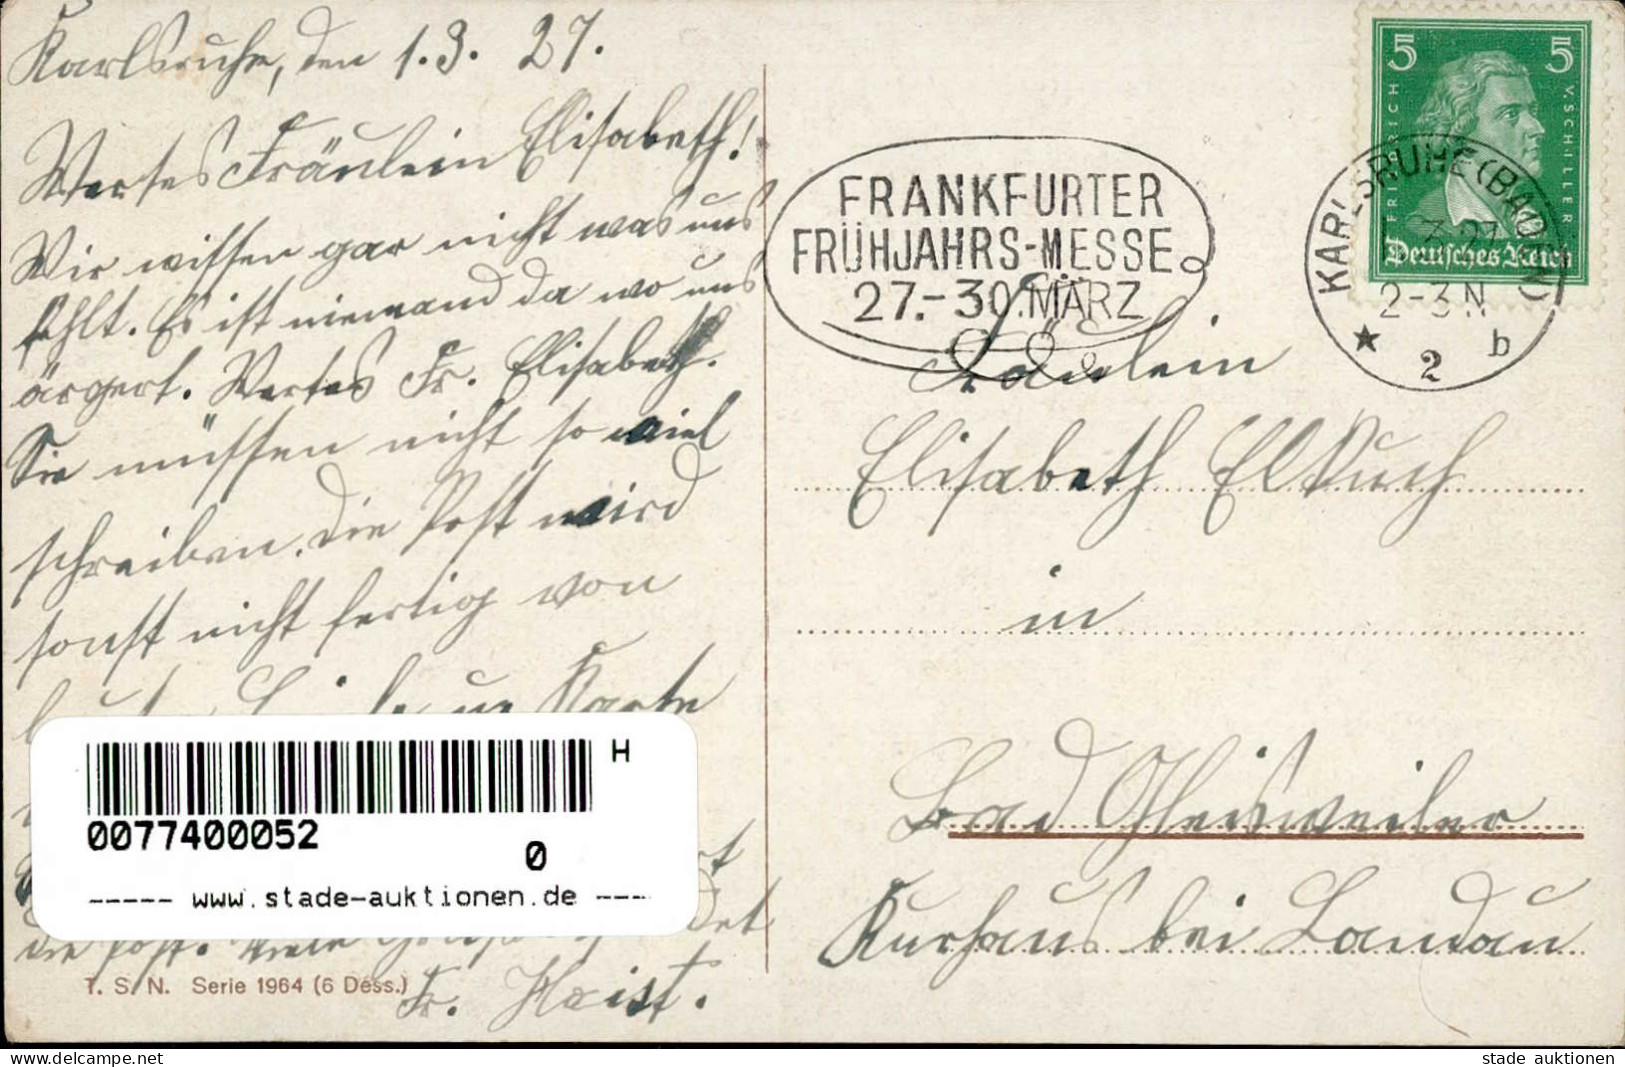 Karlsruhe, den 1.3. 27.
Wertes Fräulein Elisabeth!
Wir wissen gar nicht was uns
fehlt. Es ist niemand da wo uns
ärgert. Wertes Fr. Elisabeth.
Sie müssen nicht so viel
schreiben, die Post wird
sonst nicht fertig von
Karte
die Post. Viele
Fr. Heist.
T. S. N. Serie 1964 (6 Dess.)
H
0077400052
0
----- www.stade-auktionen.de ----
FRANKFURTER
FRÜHJAHRS-MESSE
27.-30.MÄRZ
5 5
FRIEDRICH
V. SCHILLER
Deutsches Reich
KARLSRUHE (BADEN)
2-3 N
* 2 b
Fräulein
Elisabeth
in
Bad Gleisweiler
Kurhaus bei Landau
www.delcampe.net
stade auktionen